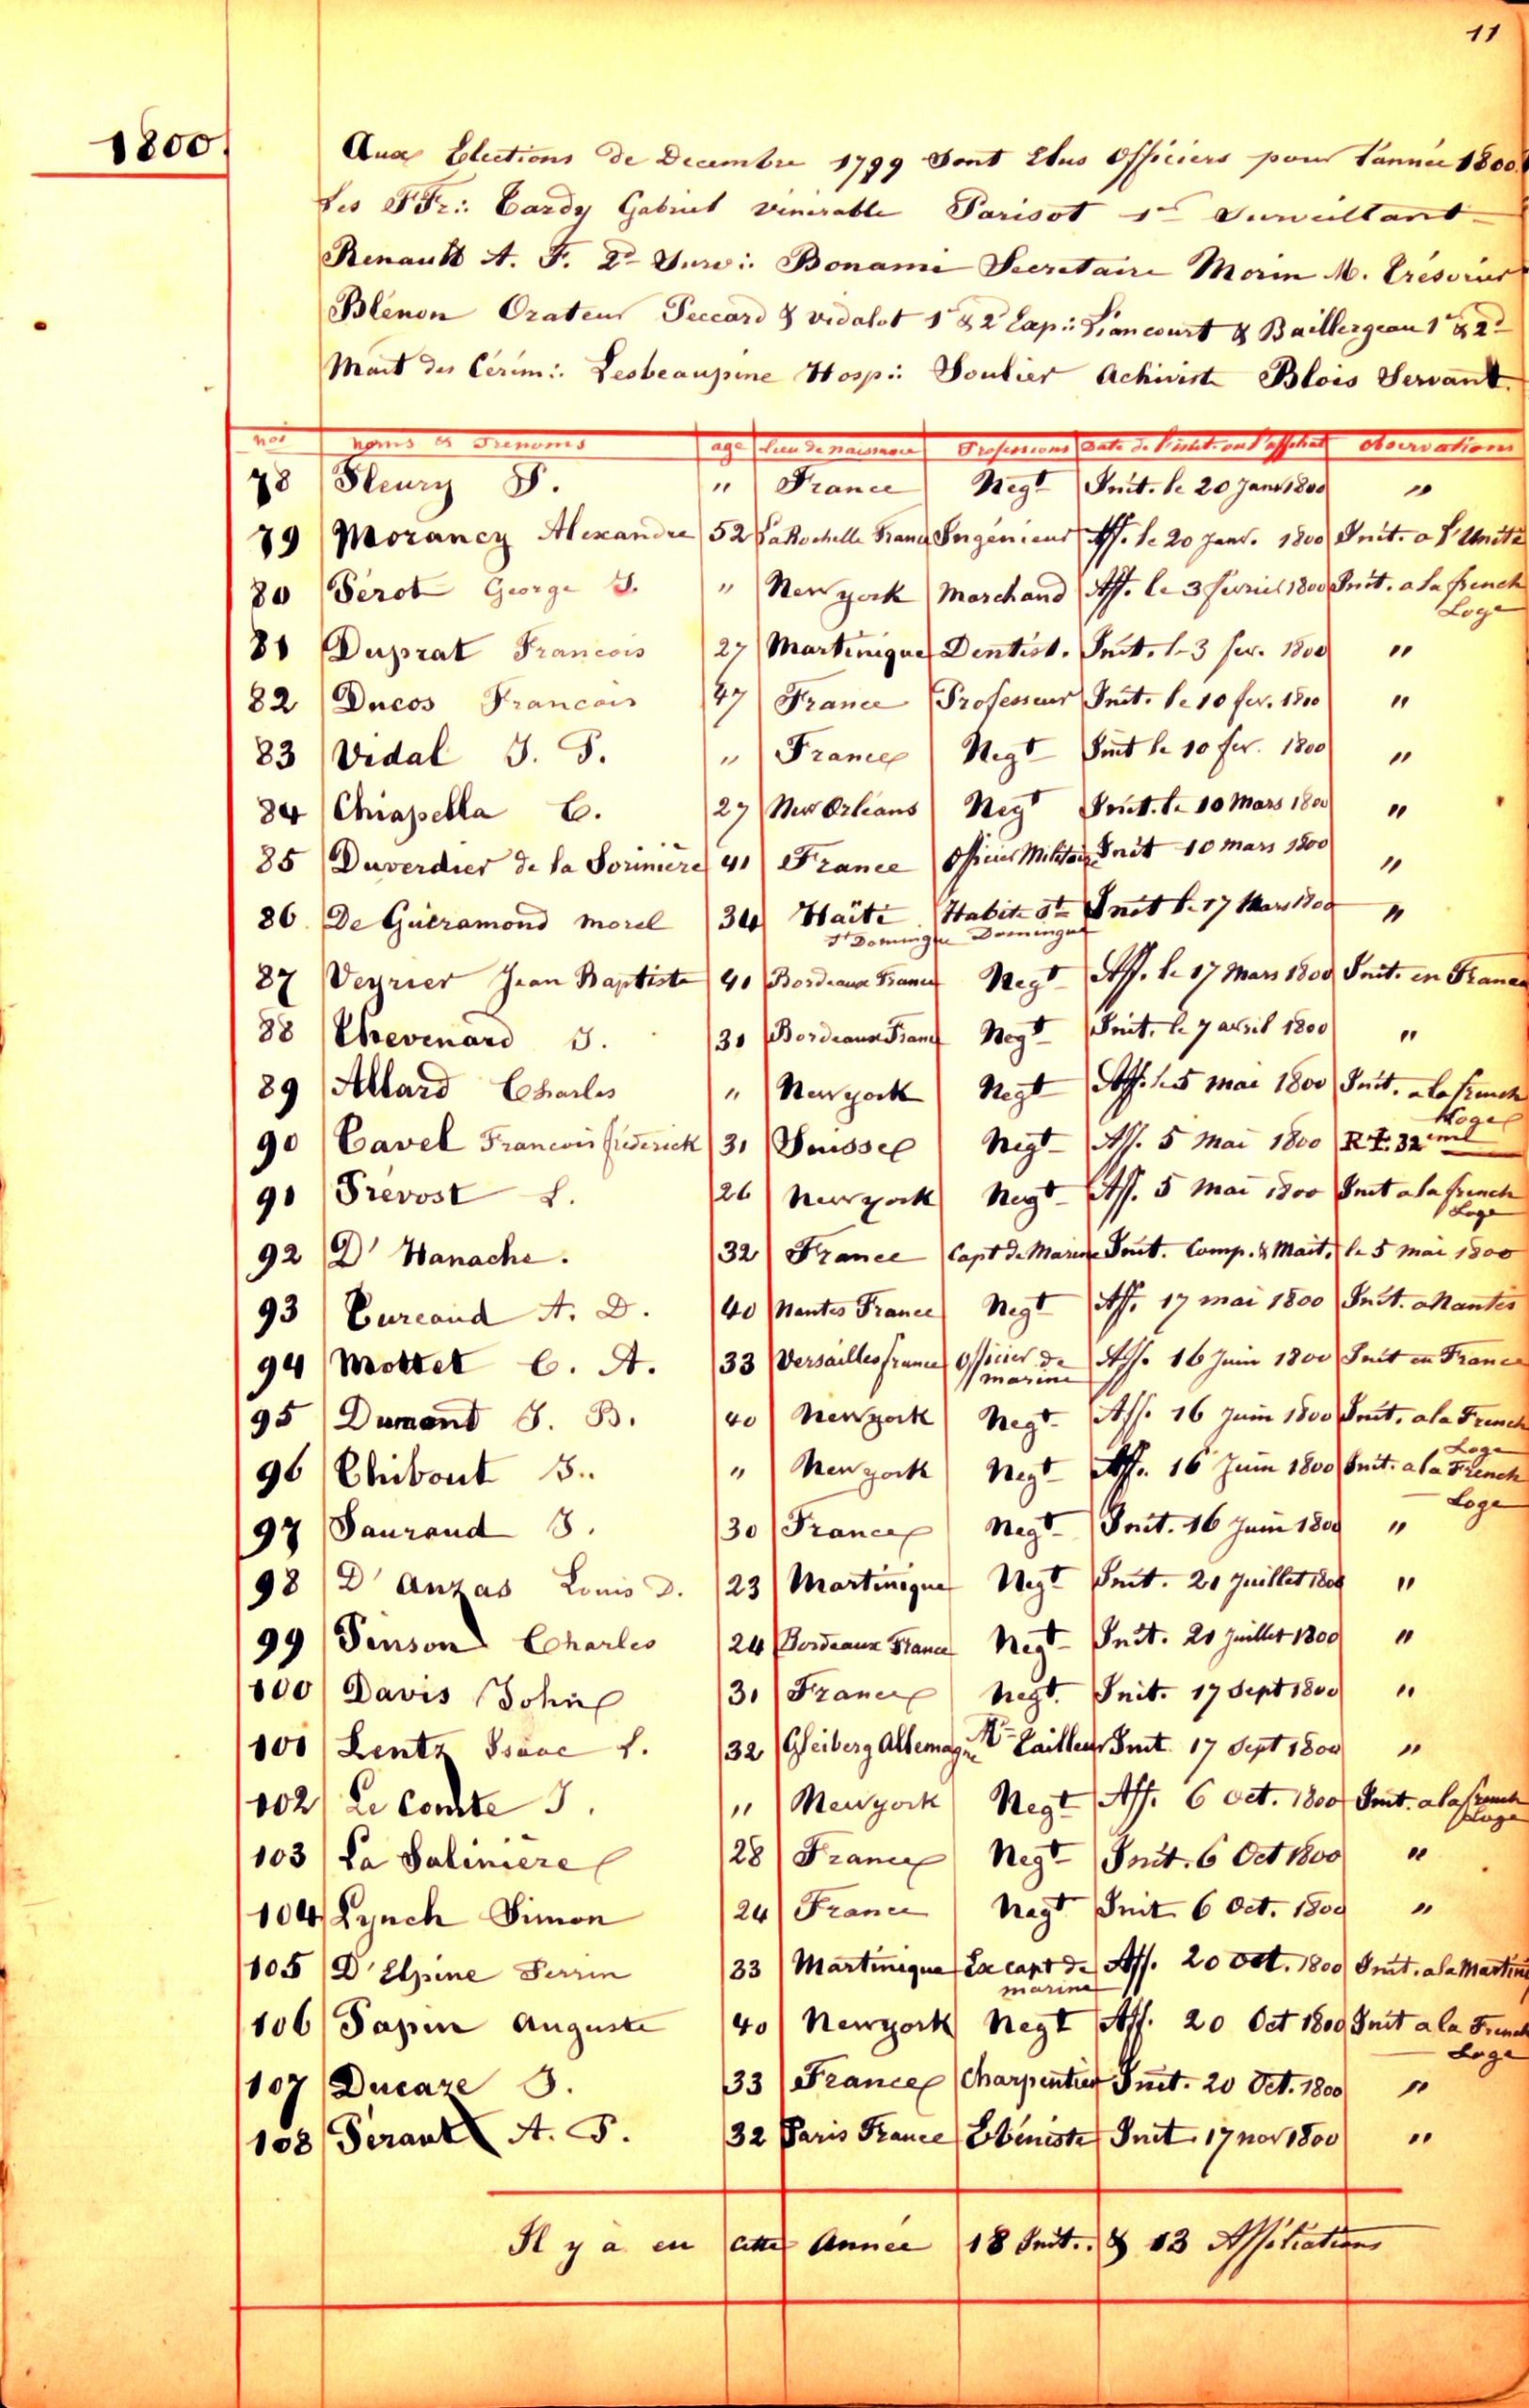 11
1800.
Aux Elections de Decembre 1799 Sont Elus Officiers pour l'année 1800.
Les FFr:. Cardy Gabriel Vénérable Parisot 1er Surveillant
Renault A. F. 2d Surv:. Bonamie Secretaire Morin M. Trésorier
Blénon Orateur Peccard & Vidalot 1r & 2d Exp:. Liancourt & Baillergeau 1r & 2d
Mait des Cérém:. Lesbeaupine Hosp:. Soulier Achiviste Blois Servant.
nos noms & Prenoms age Lieu de naissance Professions Date de l'init. ou l'affiliat observations
78 Fleury P. " France Negt Init. le 20 janv 1800 "
79 Morancy Alexandre 52 La Rochelle France Ingénieur Aff. le 20 janv. 1800 Init. a l'Unité
80 Pérot George J. " New york Marchand Aff. le 3 fevrier 1800 Init. a la french Loge
81 Duprat Francois 27 Martinique Dentist. Init. le 3 fev. 1800 "
82 Ducos Francois 47 France Professeur Init. le 10 fev. 1800 "
83 Vidal J. P. " France Negt Init le 10 fev. 1800 "
84 Chiapella C. 27 New Orléans Negt Init. le 10 Mars 1800 "
85 Duverdier de la Sorinière 41 France Officier Militaire Init 10 mars 1800 "
86 De Guéramond Morel 34 Haïti St Domingue Habit. St Domingue Init le 17 Mars 1800 "
87 Veyrier Jean Baptiste 41 Bordeaux France Negt Aff. le 17 Mars 1800 Init. en France
88 Chevenard J. 31 Bordeaux France Negt Init. le 7 avril 1800 "
89 Allard Charles " New york Negt Aff. le 5 mai 1800 Init. a la french Loge
90 Cavel Francois fréderick 31 Suisse Negt Aff. 5 Mai 1800 R. †. 32eme
91 Prévost L. 26 New york Negt Aff. 5 Mai 1800 Init a la french Loge
92 D' Hanache. 32 France Capt de Marine Init. Comp. & Mait. le 5 mai 1800
93 Cureaud A. D. 40 Nantes France Negt Aff. 17 mai 1800 Init. a Nantes
94 Mottet C. A. 33 Versailles france Officier de marine Aff. 16 juin 1800 Init en France
95 Dumont J. B. 40 New york Negt Aff. 16 juin 1800 Init. a la French Loge
96 Chibout J. " New york Negt Aff. 16 Juin 1800 Init. a la French Loge
97 Saurand J. 30 France Negt Init. 16 juin 1800 "
98 D' Anzas Louis D. 23 Martinique Negt Init. 21 juillet 1800 "
99 Pinson Charles 24 Bordeaux France Negt Init. 21 juillet 1800 "
100 Davis John 31 France Negt. Init. 17 Sept 1800 "
101 Lentz Isaac L. 32 Gleiberg Allemagne Md Tailleur Init. 17 Sept 1800 "
102 Le Comte J. " New york Negt Aff. 6 oct. 1800 Init. a la french Loge
103 La Salinière 28 France Negt Init. 6 Oct 1800 "
104 Lynch Simon 24 France Negt Init 6 Oct. 1800 "
105 D'Elpine Perrin 33 Martinique Ex capt de marine Aff. 20 Oct. 1800 Init. a la Martini
106 Papin Auguste 40 New york Negt Aff. 20 Oct 1800 Init a la French Loge
107 Ducaze J. 33 France Charpentier Init. 20 Oct. 1800 "
108 Pérault A. P. 32 Paris France Ebéniste Init. 17 nov 1800 "
Il y a eu cette Année 18 Init. & 13 Affiliations